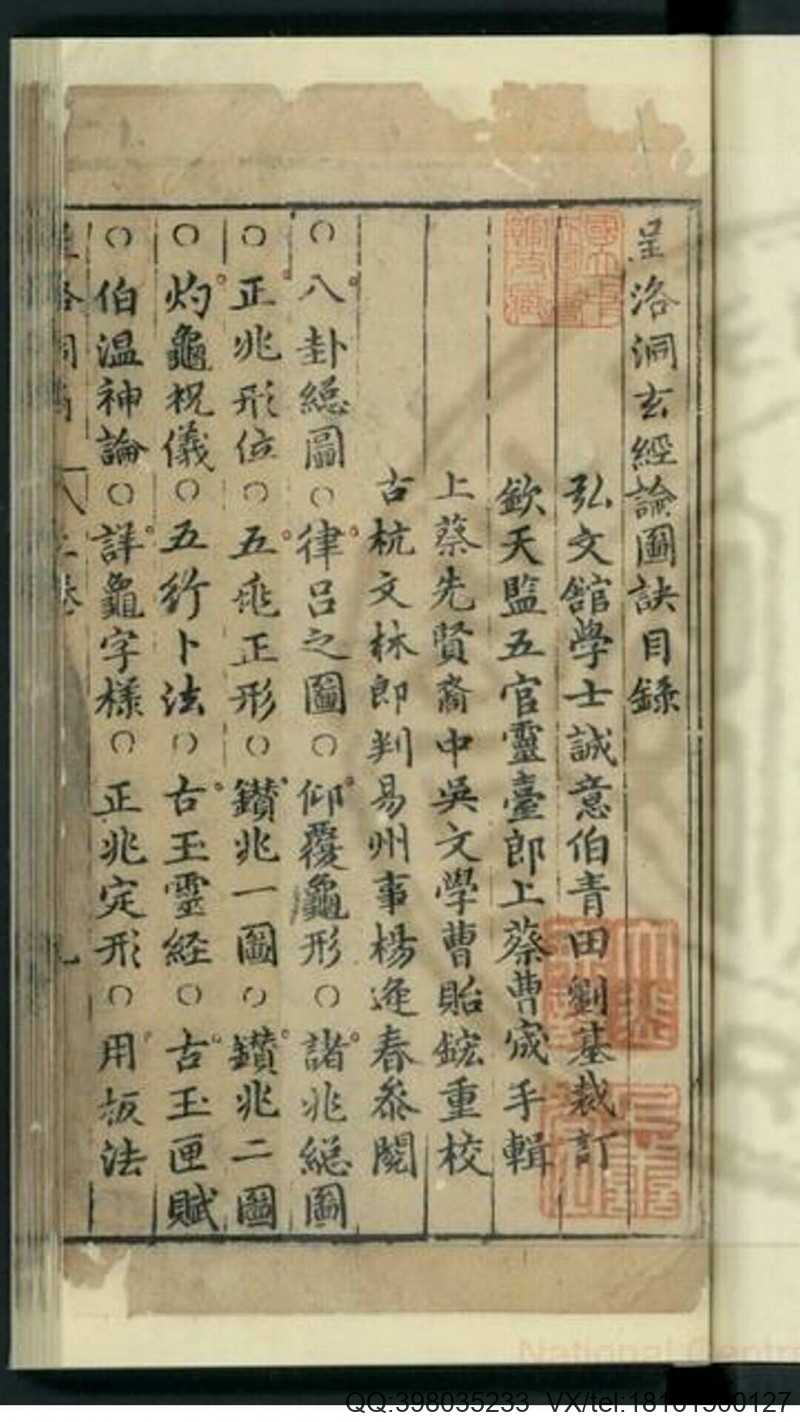 呈洛洞玄經論圖訣目錄
弘文館學士誠意伯青田劉基裁訂
欽天監五官靈臺郎上蔡曹宬手輯
上蔡先賢裔中吳文學曹貽鋐重校
古杭文林郎判易州事楊逢春叅閱
○八卦總圖○律呂之圖○仰覆龜形○諸兆總圖
○正兆形位○五兆正形○鑽兆一圖○鑽兆二圖
○灼龜祝儀○五行卜法○古玉靈経○古玉匣賦
○伯温神論○詳龜字樣○正兆定形○用板法
National Centr
QQ:398035233 VX/tel:18101500127